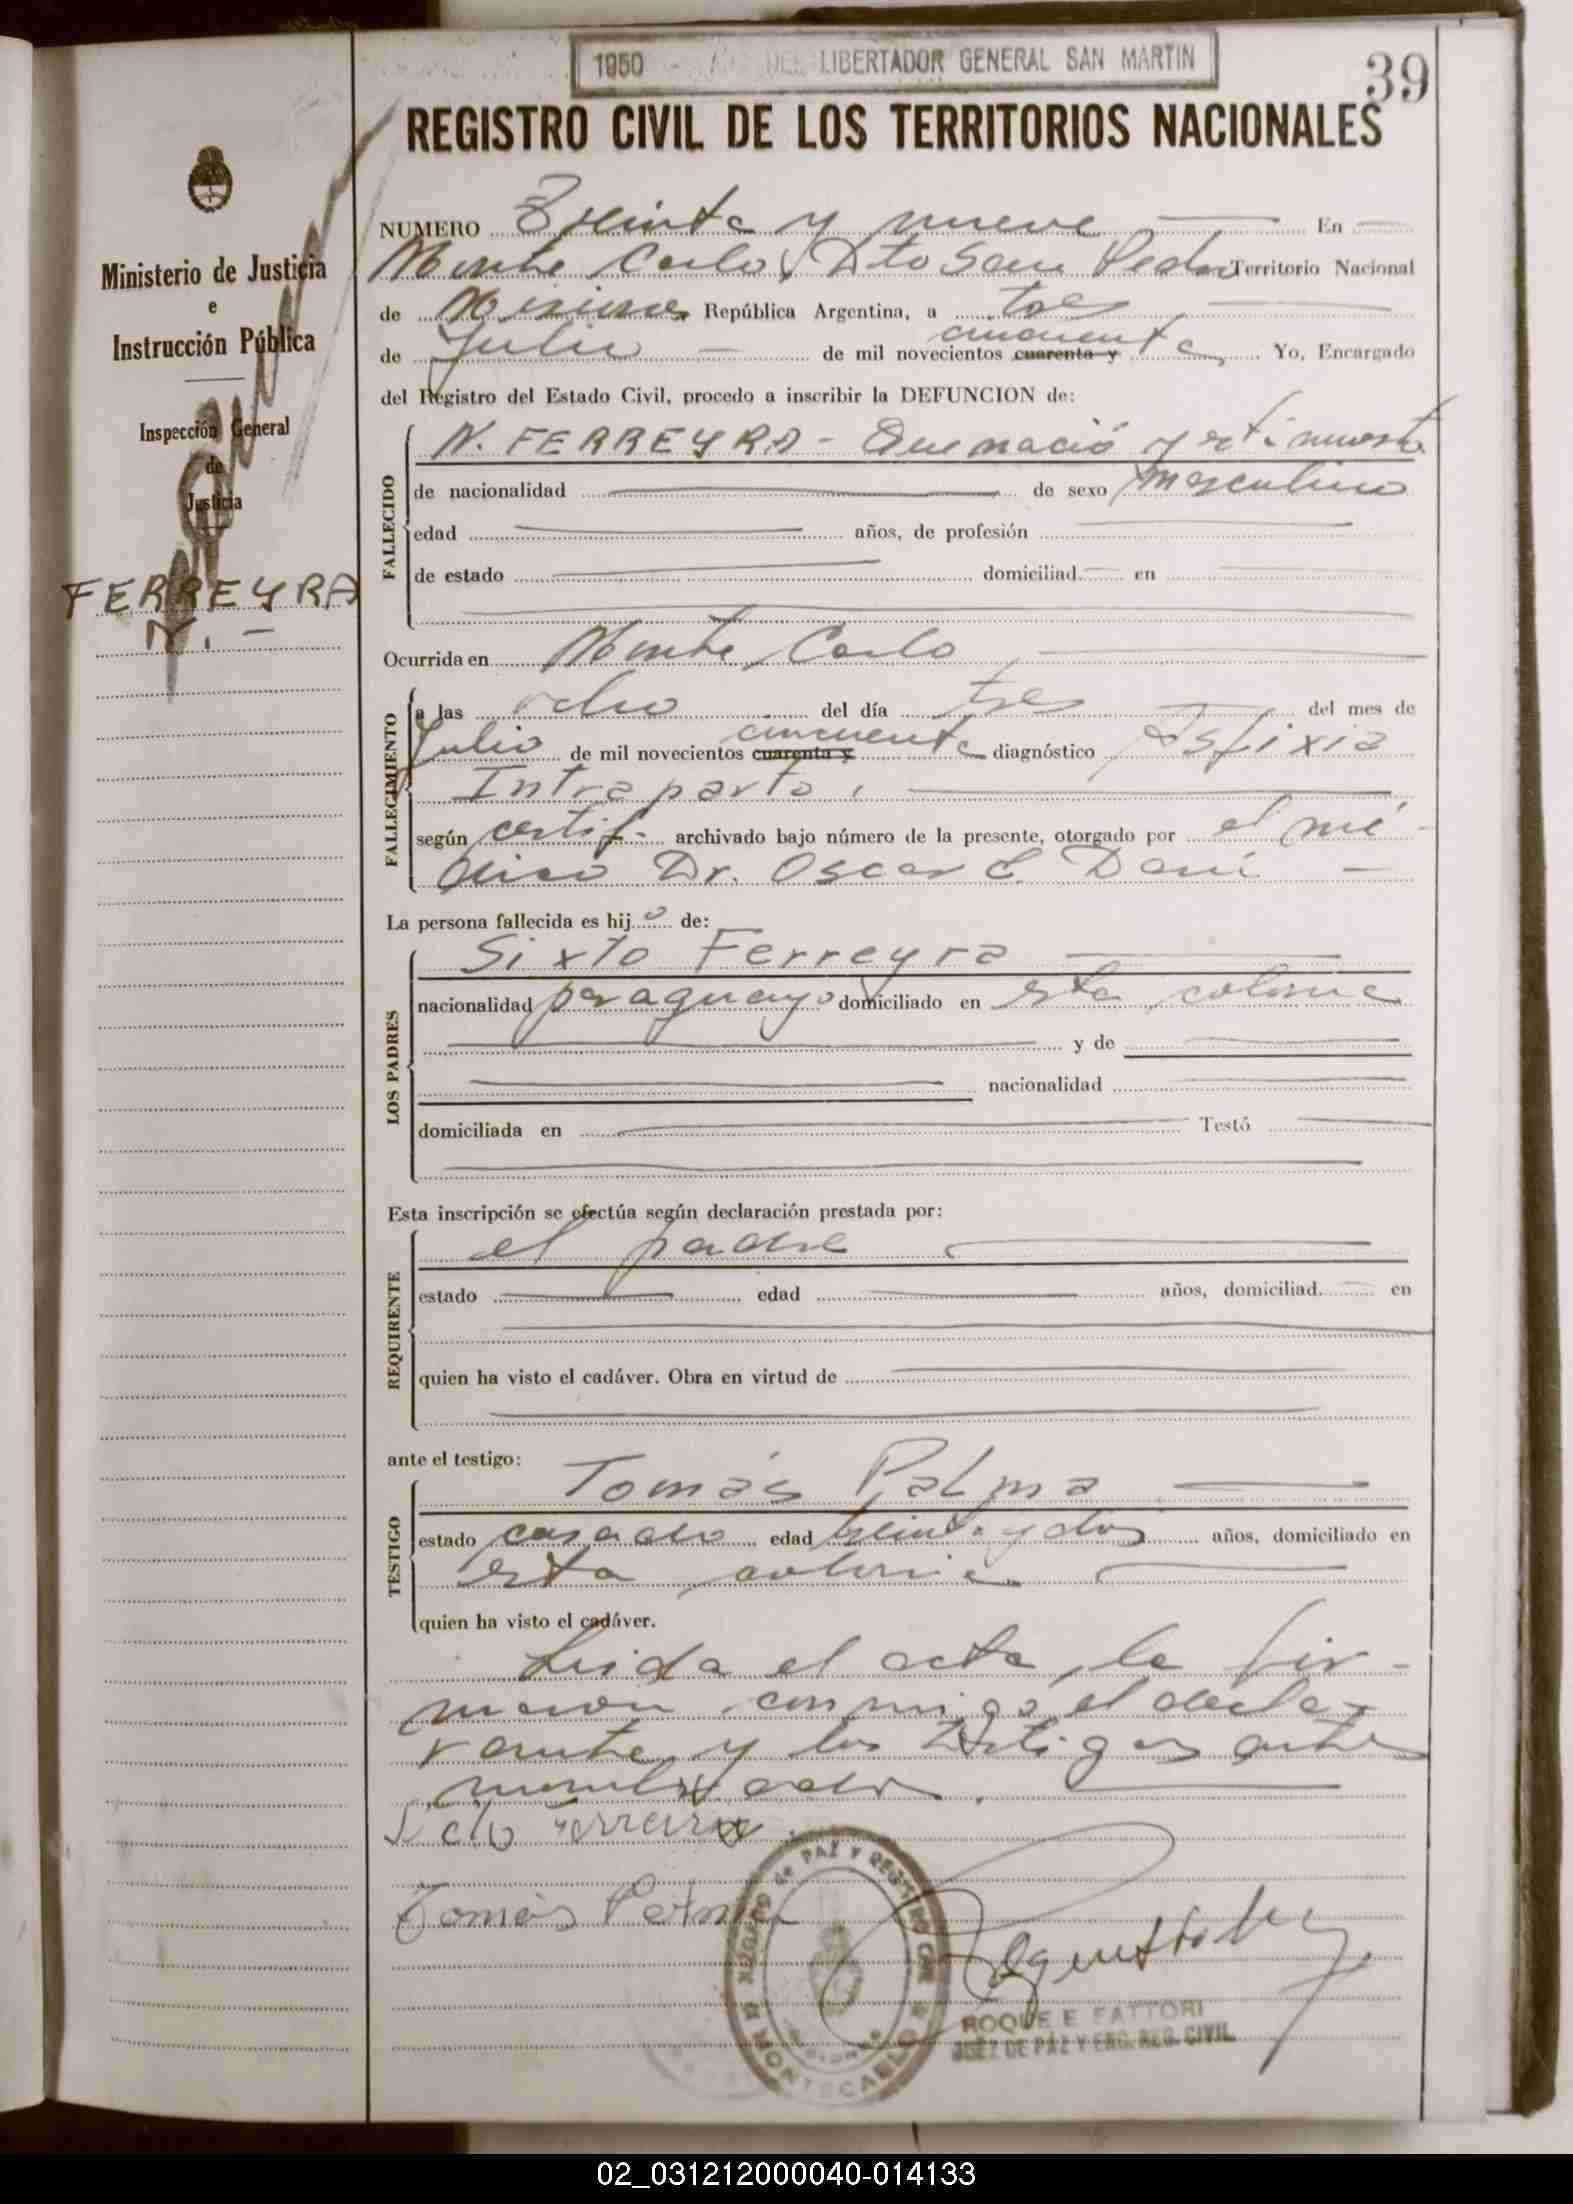 1950 - AÑO DEL LIBERTADOR GENERAL SAN MARTIN
39
REGISTRO CIVIL DE LOS TERRITORIOS NACIONALES
Ministerio de Justicia
e
Instrucción Pública
Inspección General
de
Justicia
FERREYRA
N. -
NUMERO Treinta y nueve En
Monte Carlo, Dto San Pedro Territorio Nacional
de Misiones República Argentina, a tres
cincuenta
de Julio de mil novecientos cuarenta y Yo, Encargado
del Registro del Estado Civil, procedo a inscribir la DEFUNCION de:
FALLECIDO
N. FERREYRA - Que nació y está muerto
de nacionalidad de sexo masculino
edad años, de profesión
de estado domiciliad en
Ocurrida en Monte Carlo
FALLECIMIENTO
a las ocho del día tres del mes de
cincuenta
Julio de mil novecientos cuarenta y diagnóstico Asfixia
Intraparto.
según certif. archivado bajo número de la presente, otorgado por el mé-
dico Dr. Oscar E.
La persona fallecida es hijo de:
LOS PADRES
Sixto Ferreyra
nacionalidad paraguayo domiciliado en esta colonia
y de
nacionalidad
domiciliada en Testó
Esta inscripción se efectúa según declaración prestada por:
REQUIRENTE
el padre
estado edad años, domiciliad en
quien ha visto el cadáver. Obra en virtud de
ante el testigo:
TESTIGO
Tomás Palma
estado casado edad treinta y dos años, domiciliado en
esta colonia
quien ha visto el cadáver.
Leida el acta, la fir-
maron conmigo el decla-
rante y los testigos ante
nombrados.
Sixto Ferreira
Tomás Palma
JUZGADO de PAZ Y REGISTRO CIVIL
MONTECARLO
MISIONES
ROQUE E. FATTORI
JUEZ DE PAZ Y ENC. REG. CIVIL
02_031212000040-014133